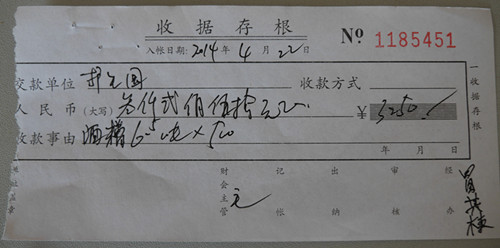 收据存根
入帐日期: 2014年4月22日
№ 1185451
交款单位 收款方式
人民币(大写) 叁仟贰佰伍拾元 ¥ 3250
收款事由 酒糟 6.5吨×500
年 月 日
财会主管 记帐 出纳 审核 经办
一收据存根